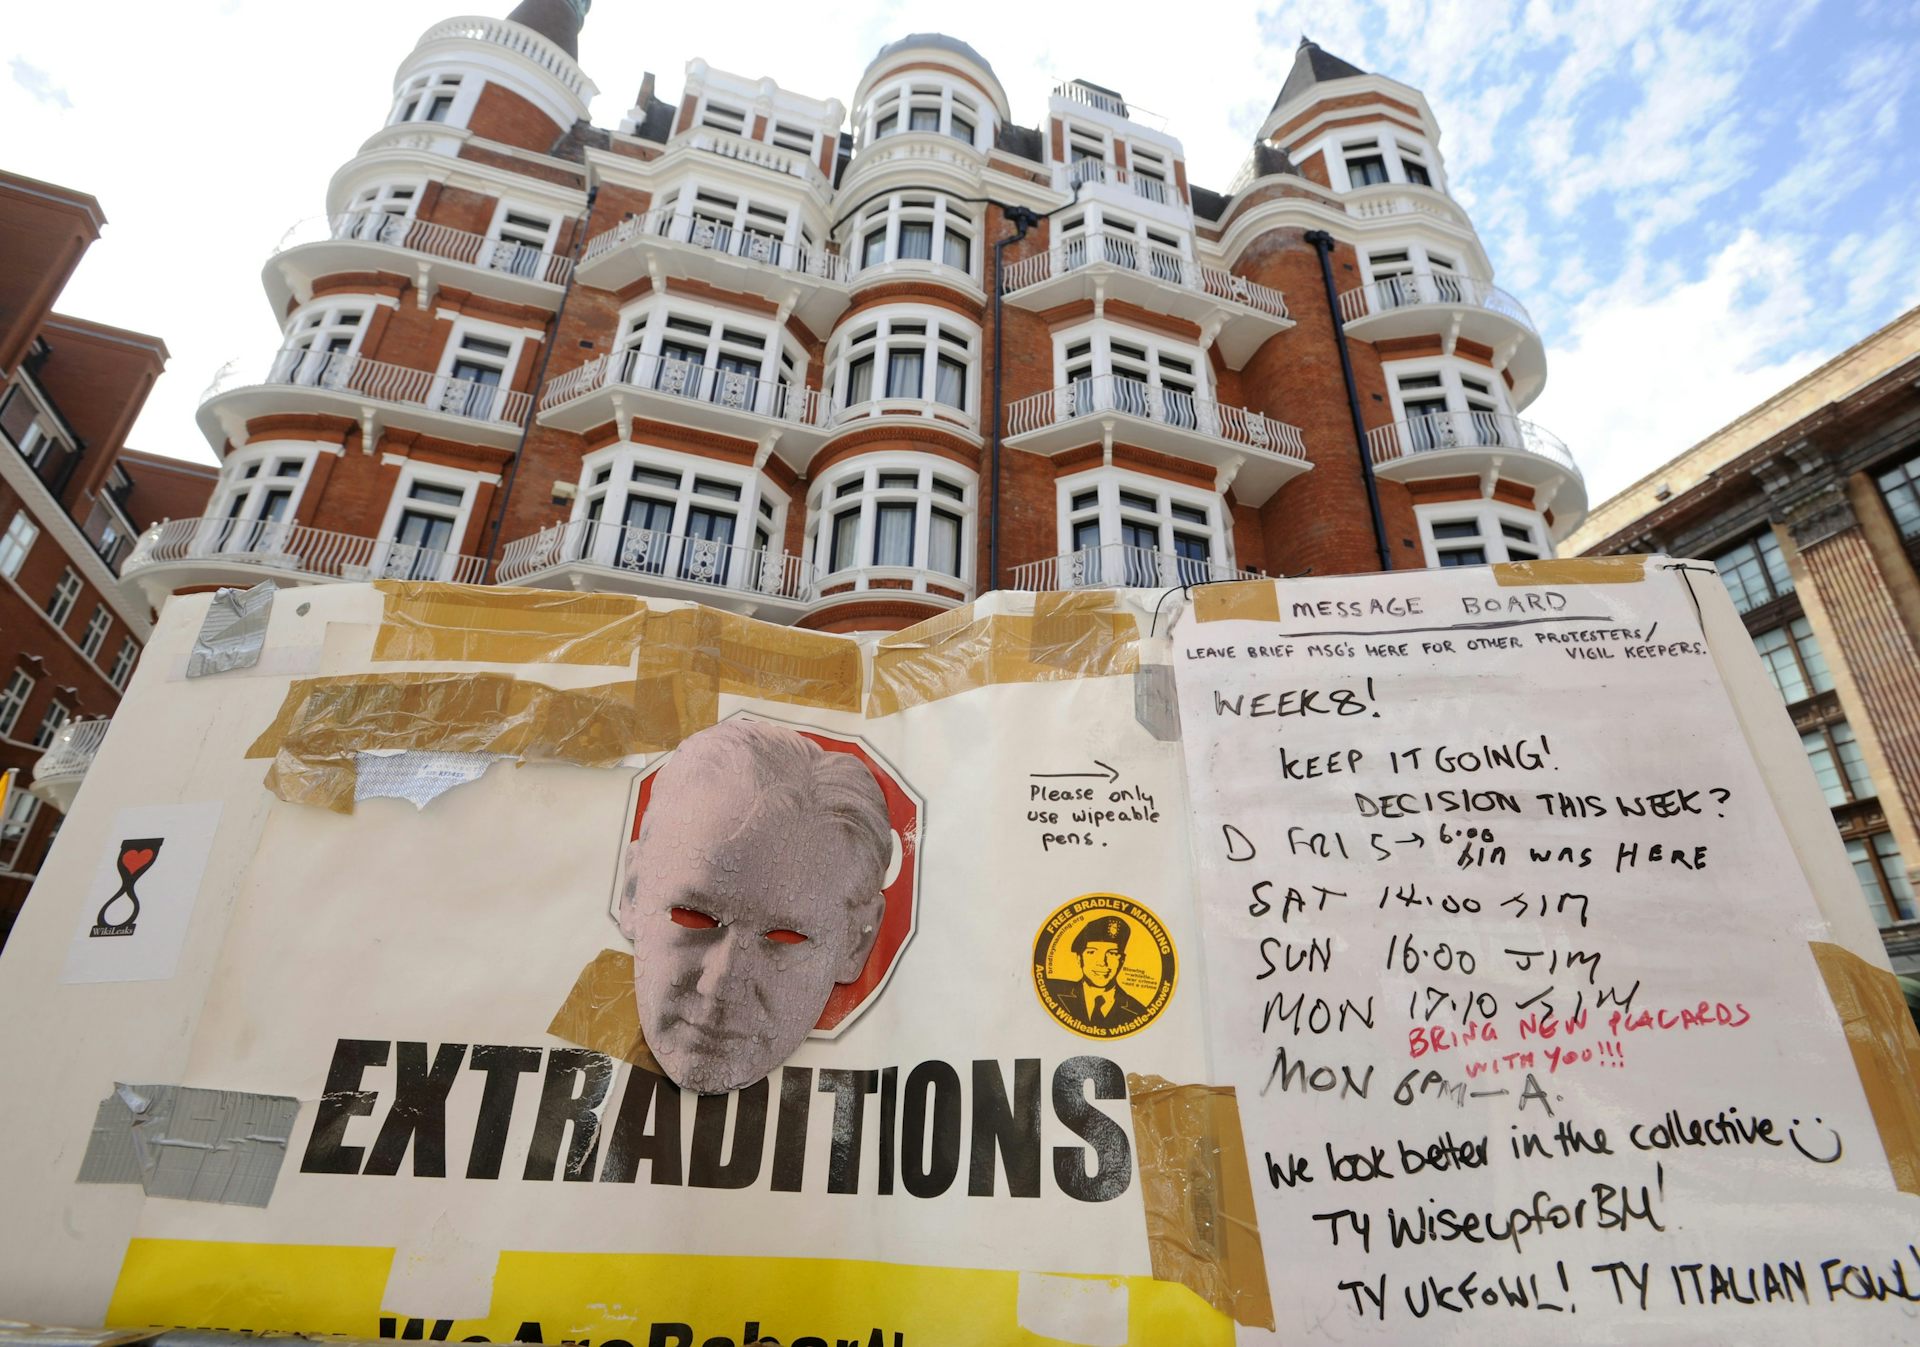 WikiLeaks
EXTRADITIONS
Please only
use wipeable
pens.
FREE BRADLEY MANNING
bradleymanning.org
Blowing
the whistle
on war crimes
is not a crime
Accused Wikileaks whistle-blower
MESSAGE BOARD
LEAVE BRIEF MSG'S HERE FOR OTHER PROTESTERS/
VIGIL KEEPERS.
WEEK 8!
KEEP IT GOING!
DECISION THIS WEEK?
D FRI 5→ 6:00
WAS HERE
SAT 14.00 JIM
SUN 16.00 JIM
MON 17.10 JIM
BRING NEW PLACARDS
WITH YOU!!!
MON 6PM—A.
We look better in the collective
TY WiseupforBM!
TY UKFOWL! TY ITALIAN FOWL!